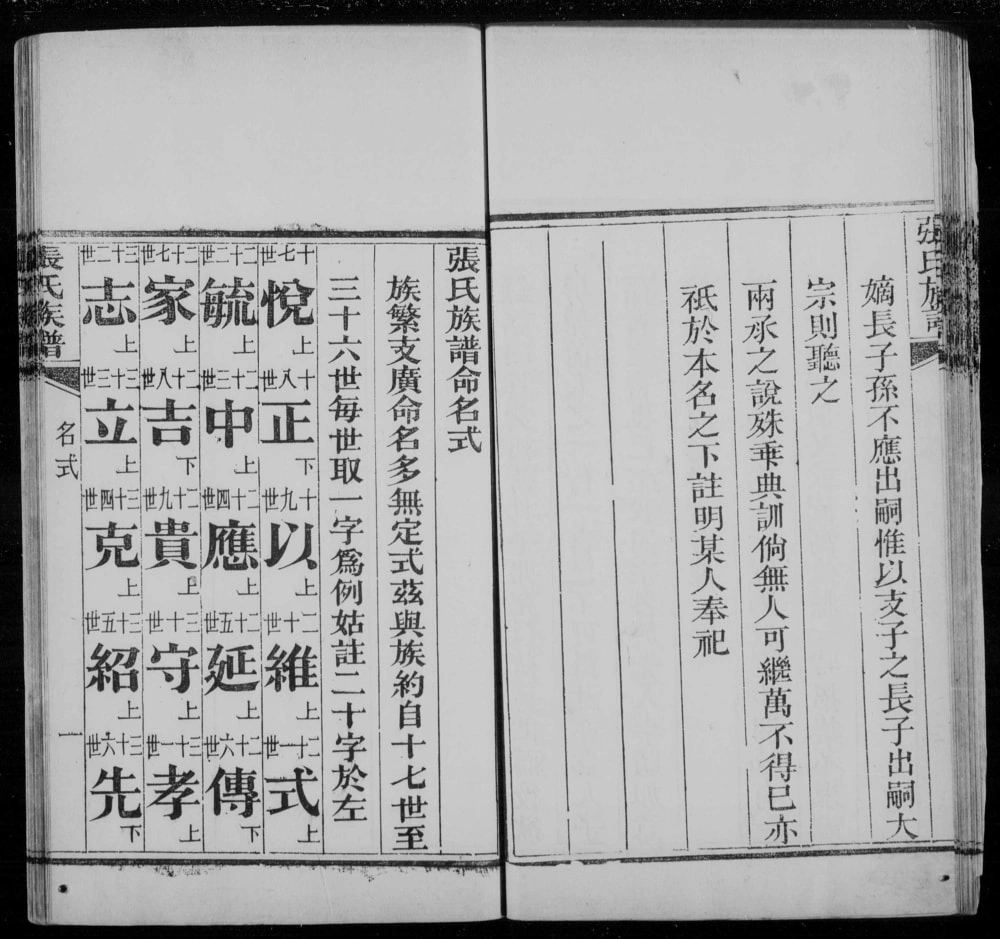 張氏族譜
嫡長子孫不應出嗣惟以支子之長子出嗣大
宗則聽之
兩承之說殊乖典訓倘無人可繼萬不得已亦
祇於本名之下註明某人奉祀
張氏族譜命名式
族繁支廣命名多無定式茲與族約自十七世至
三十六世每世取一字爲例姑註二十字於左
十七世 悅上 十八世 正下 十九世 以上 二十世 維上 二十一世 式上
二十二世 毓上 二十三世 中上 二十四世 應上 二十五世 延上 二十六世 傳下
二十七世 家上 二十八世 吉下 二十九世 貴上 三十世 守上 三十一世 孝上
三十二世 志上 三十三世 立上 三十四世 克上 三十五世 紹上 三十六世 先下
張氏族譜 名式 一